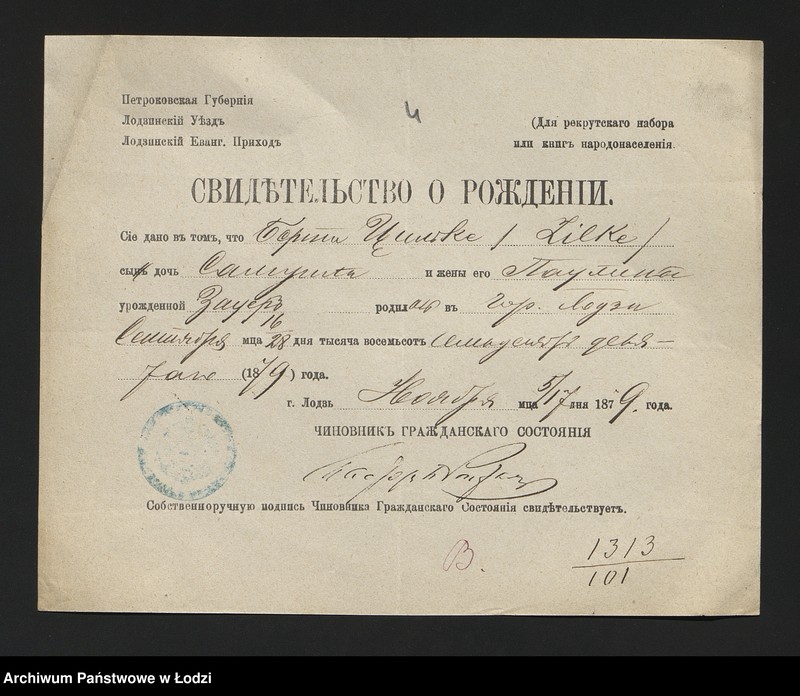 Петроковская Губернія
Лодзинскій Уѣздъ
Лодзинскій Еванг. Приходъ
4
(Для рекрутскаго набора
или книгъ народонаселенія.
СВИДѢТЕЛЬСТВО О РОЖДЕНІИ.
Сіе дано въ томъ, что Берта Цильке / Zilke /
сынъ дочь Самуила и жены его Паулины
урожденной Зауеръ родилась въ гор. Лодзи
Сентября мца 16/28 дня тысяча восемьсотъ семьдесятъ девя-
таго (1879) года.
г. Лодзь Ноября мца 5/17 дня 1879. года.
ЧИНОВНИКЪ ГРАЖДАНСКАГО СОСТОЯНІЯ
Собственноручную подпись Чиновника Гражданскаго Состоянія свидѣтельствуетъ.
B.
1313
101
Archiwum Państwowe w Łodzi